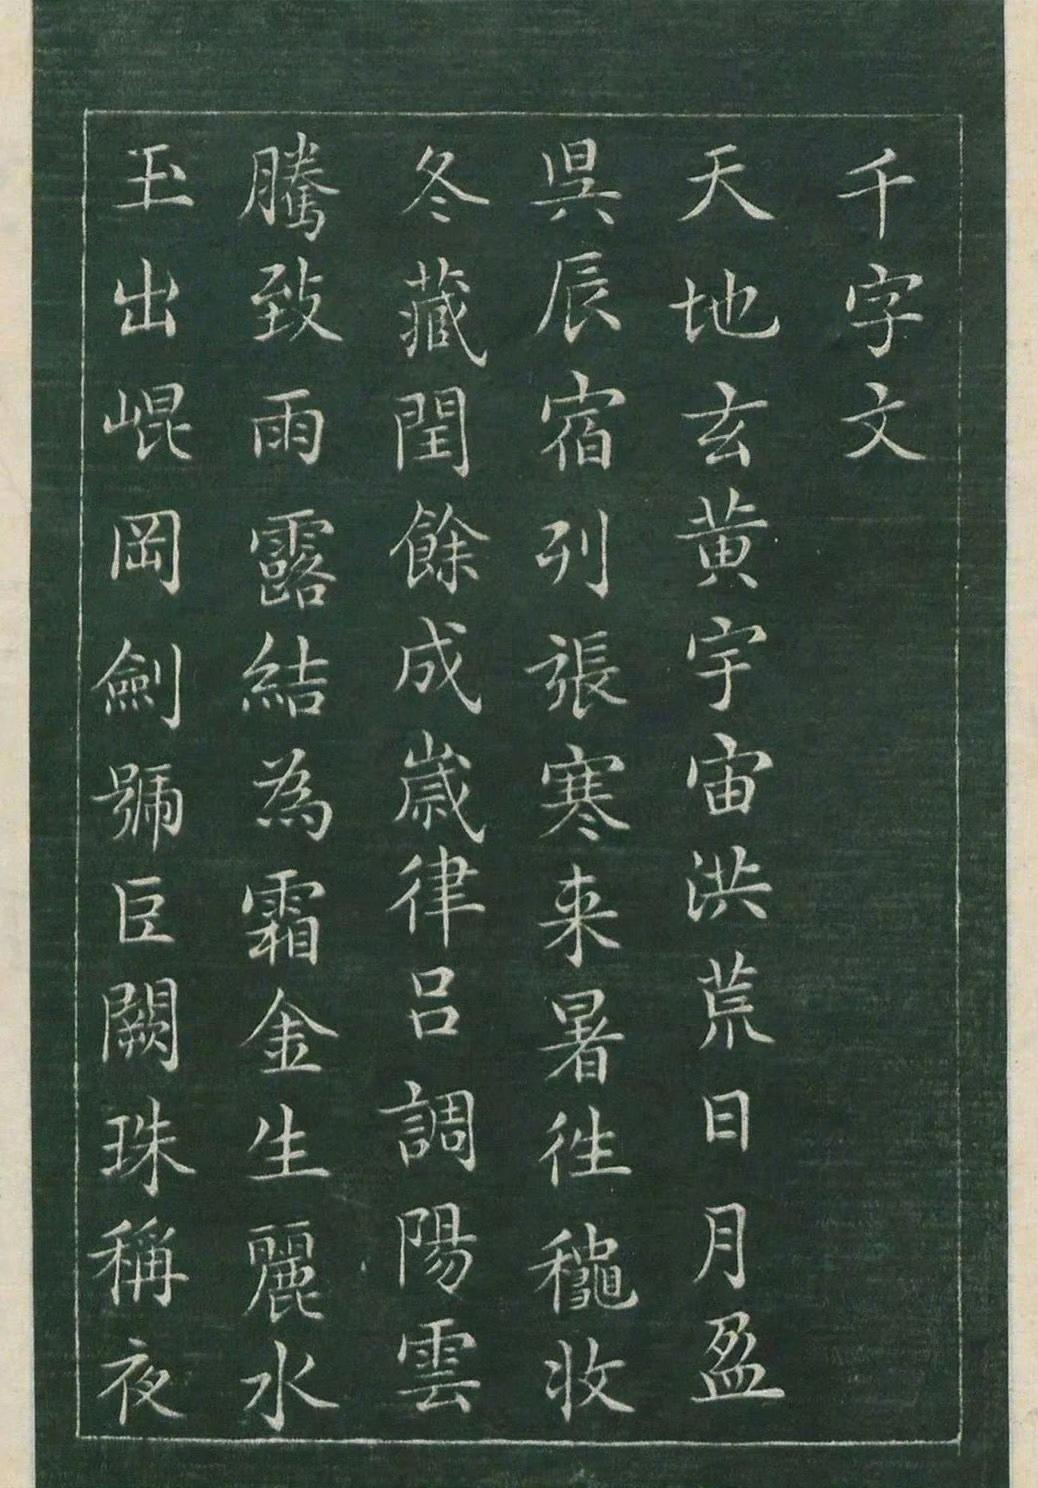 千字文
天地玄黄宇宙洪荒日月盈
昃辰宿列張寒来暑徃穐收
冬藏閏餘成歲律呂調陽雲
騰致雨露結為霜金生麗水
玉出崐岡劍號臣闕珠稱夜